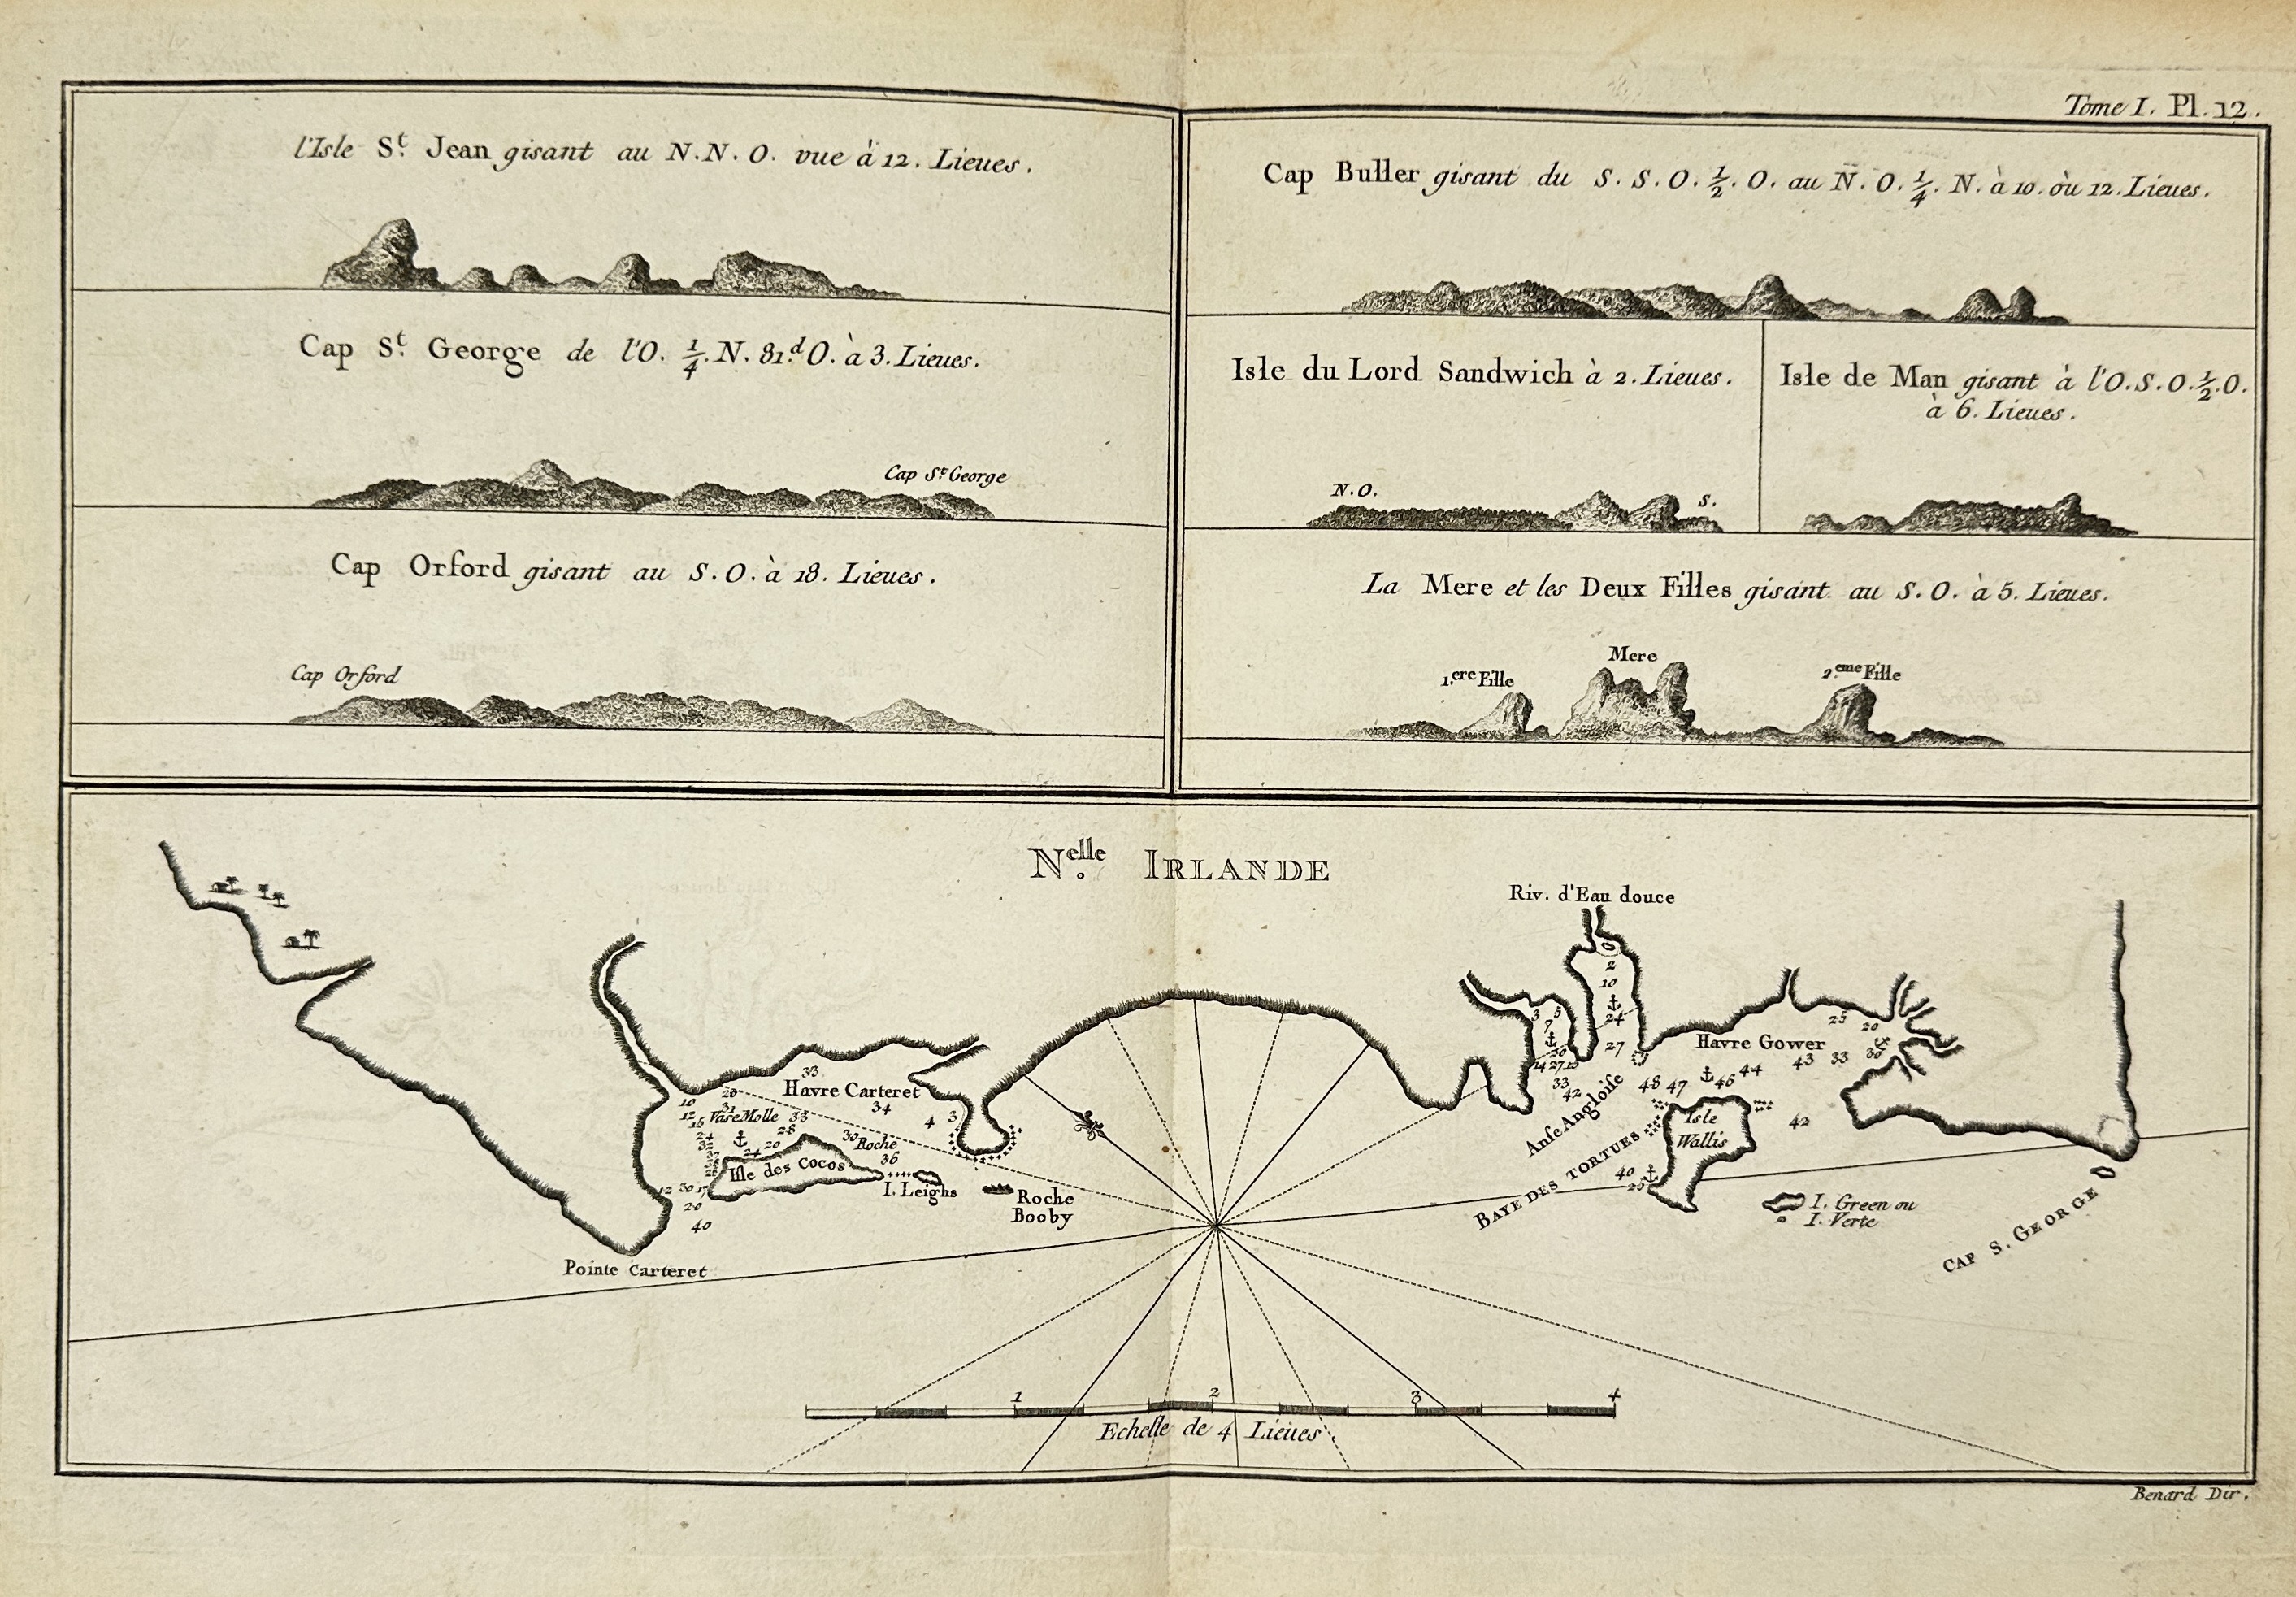 Tome I. Pl. 12.
l'Isle S.t Jean gisant au N.N.O. vue à 12. Lieues.
Cap S.t George de l'O. 1/4. N. 81.d O. à 3. Lieues.
Cap S.t George
Cap Orford gisant au S.O. à 18. Lieues.
Cap Orford
Cap Buller gisant du S.S.O. 1/2. O. au N.O. 1/4. N. à 10. où 12. Lieues.
Isle du Lord Sandwich à 2. Lieues.
N.O.
S.
Isle de Man gisant à l'O.S.O. 1/2. O.
à 6. Lieues.
La Mere et les Deux Filles gisant au S.O. à 5. Lieues.
1.ere Fille
Mere
2.eme Fille
N.elle IRLANDE
Riv. d'Eau douce
2
10
24
27
3
5
7
33
42
Havre Gower
25
20
30
33
43
44
46
47
48
42
Anse Angloise
Isle
Wallis
BAYE DES TORTUES
40
25
I. Green ou
I. Verte
CAP S. GEORGE
33
Havre Carteret
20
10
31
12
15
Vase Molle
33
34
4
3
28
20
24
30
Roche
36
Isle des Cocos
I. Leighs
Roche
Booby
12
30
17
20
40
Pointe Carteret
1
2
3
4
Echelle de 4 Lieues.
Benard Dir.